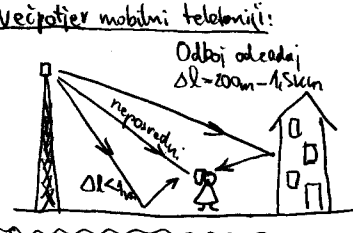 večpotjer mobilni telefoniji:
Odboj odzadaj
Δl=200m-1,5km
neposredni
Δl<1m